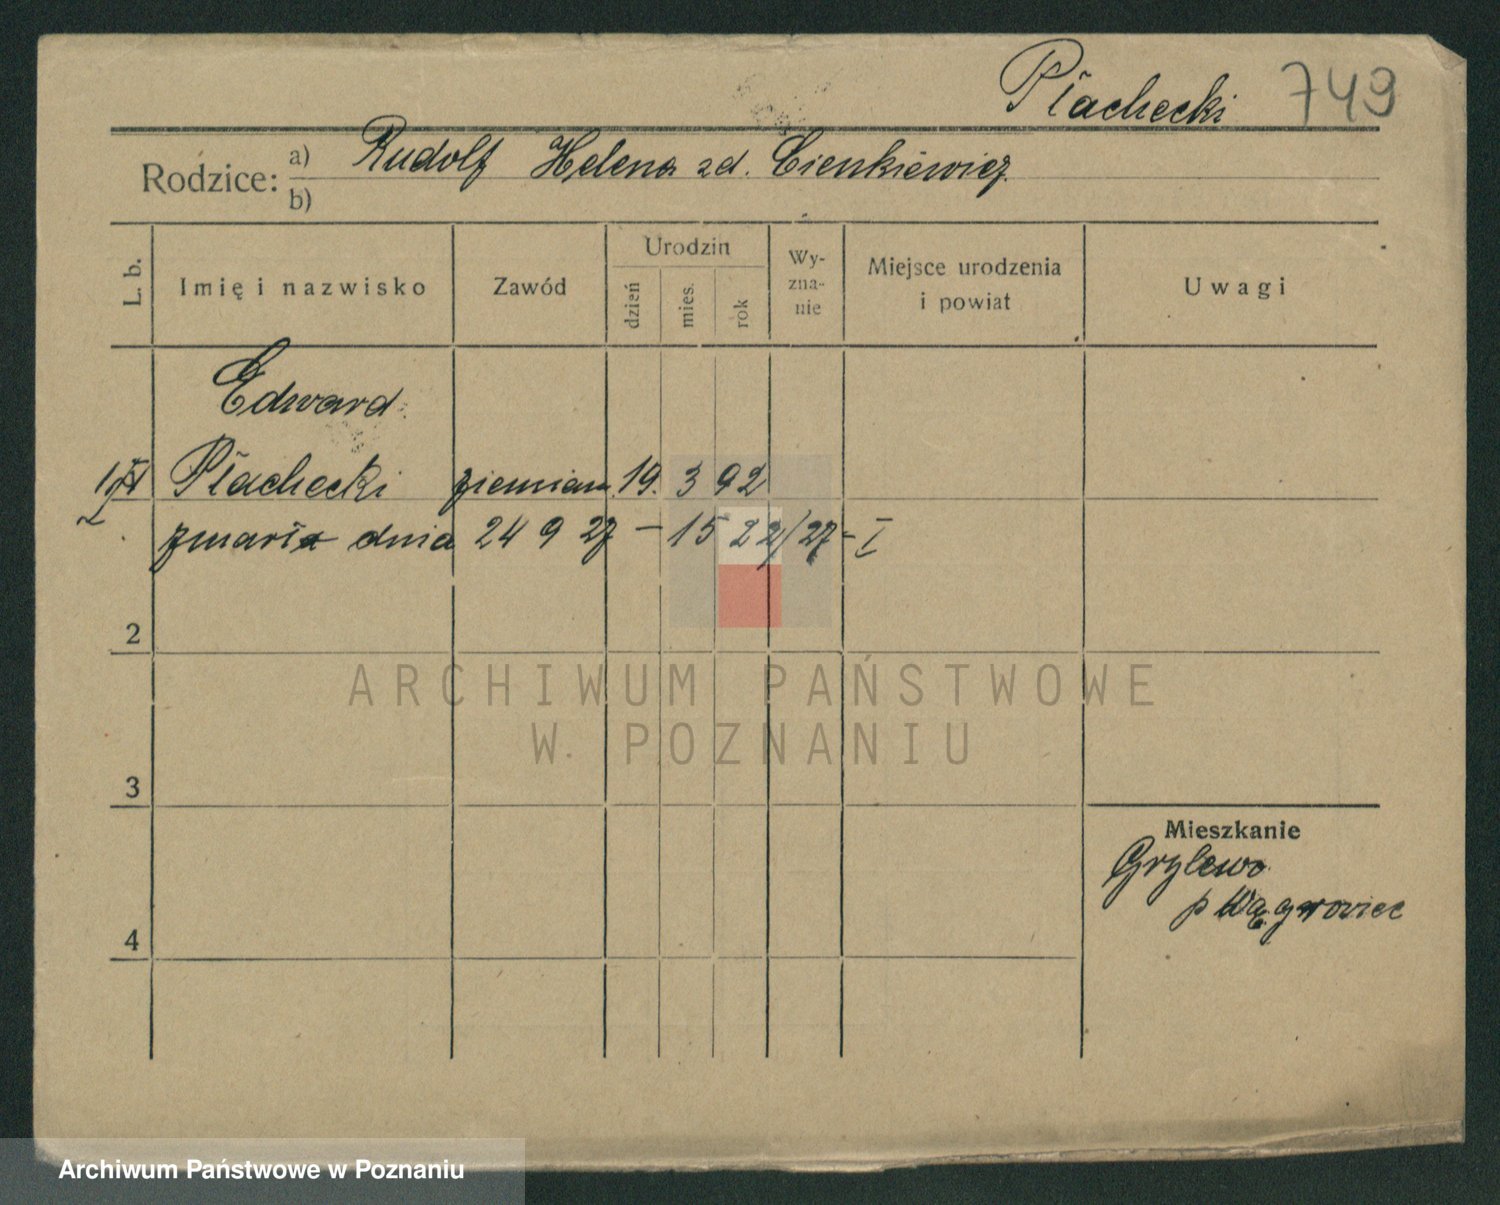 Płachecki 749
Rodzice: a) Rudolf Helena zd. Cienkiewicz
b)
L. b. Imię i nazwisko Zawód Urodzin dzień mies. rok Wy-zna-nie Miejsce urodzenia i powiat Uwagi
Edward
1 Płachecki ziemian 19. 3 92
zmarł dnia 24 9 27 – 15 22/27 – I
2
ARCHIWUM PAŃSTWOWE
W POZNANIU
3
Mieszkanie
Grylewo
p Wągrowiec
4
Archiwum Państwowe w Poznaniu